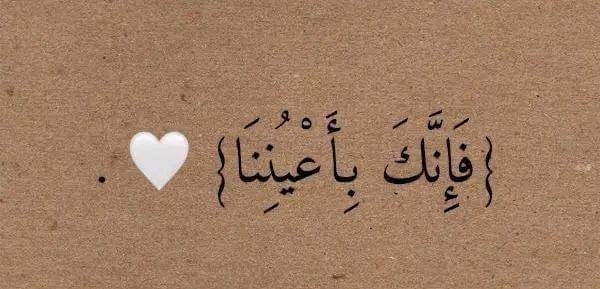 {فَإِنَّكَ بِأَعْيُنِنَا} 🤍 .